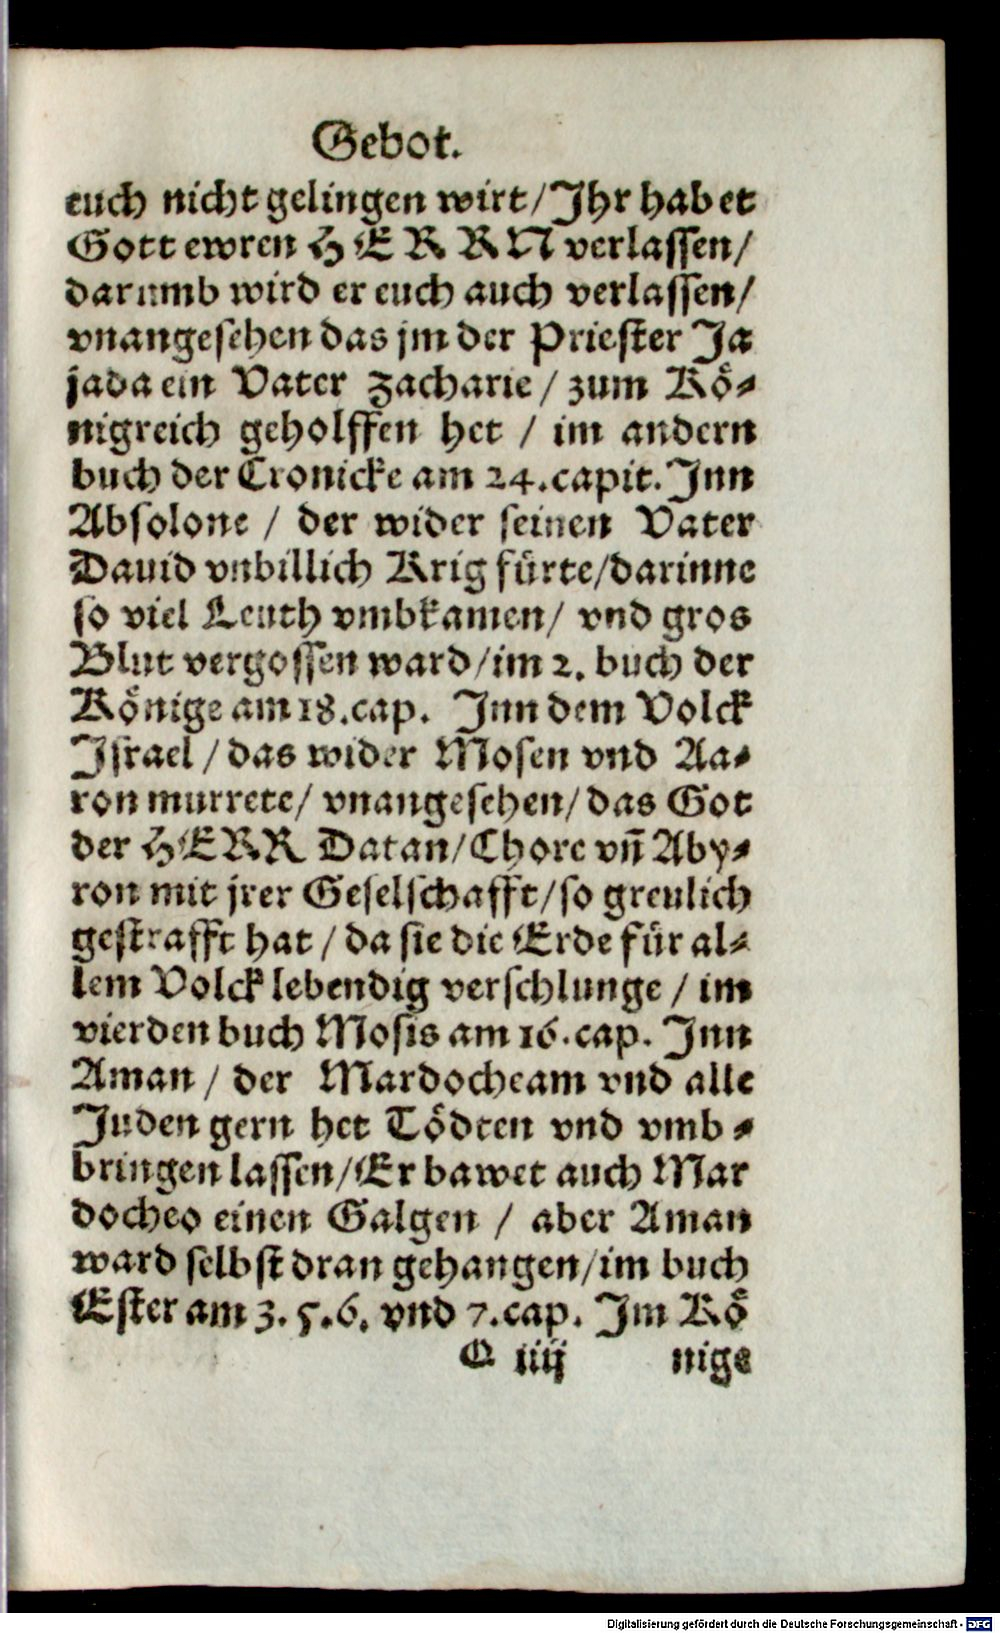 Gebot.
euch nicht gelingen wirt/Ihr habet
Gott ewren HERRN verlassen/
darumb wird er euch auch verlassen/
vnangesehen das jm der Priester Ja
jada ein Vater Zacharie / zum Kö-
nigreich geholffen het / im andern
buch der Cronicke am 24.capit. Inn
Absolone / der wider seinen Vater
Dauid vnbillich Krig fürte/darinne
so viel Leuth vmbkamen/ vnd gros
Blut vergossen ward/im 2. buch der
Könige am 18.cap. Inn dem Volck
Israel / das wider Mosen vnd Aa-
ron murrete/ vnangesehen/das Got
der HERR Datan/Chore vñ Aby-
ron mit jrer Geselschafft/so greulich
gestrafft hat / da sie die Erde für al-
lem Volck lebendig verschlunge / im
vierden buch Mosis am 16.cap. Inn
Aman / der Mardocheam vnd alle
Juden gern het Tödten vnd vmb-
bringen lassen/Er bawet auch Mar
docheo einen Galgen / aber Aman
ward selbst dran gehangen/im buch
Ester am 3. 5.6. vnd 7.cap. Im Kö
Q iiij nige
Digitalisierung gefördert durch die Deutsche Forschungsgemeinschaft - DFG